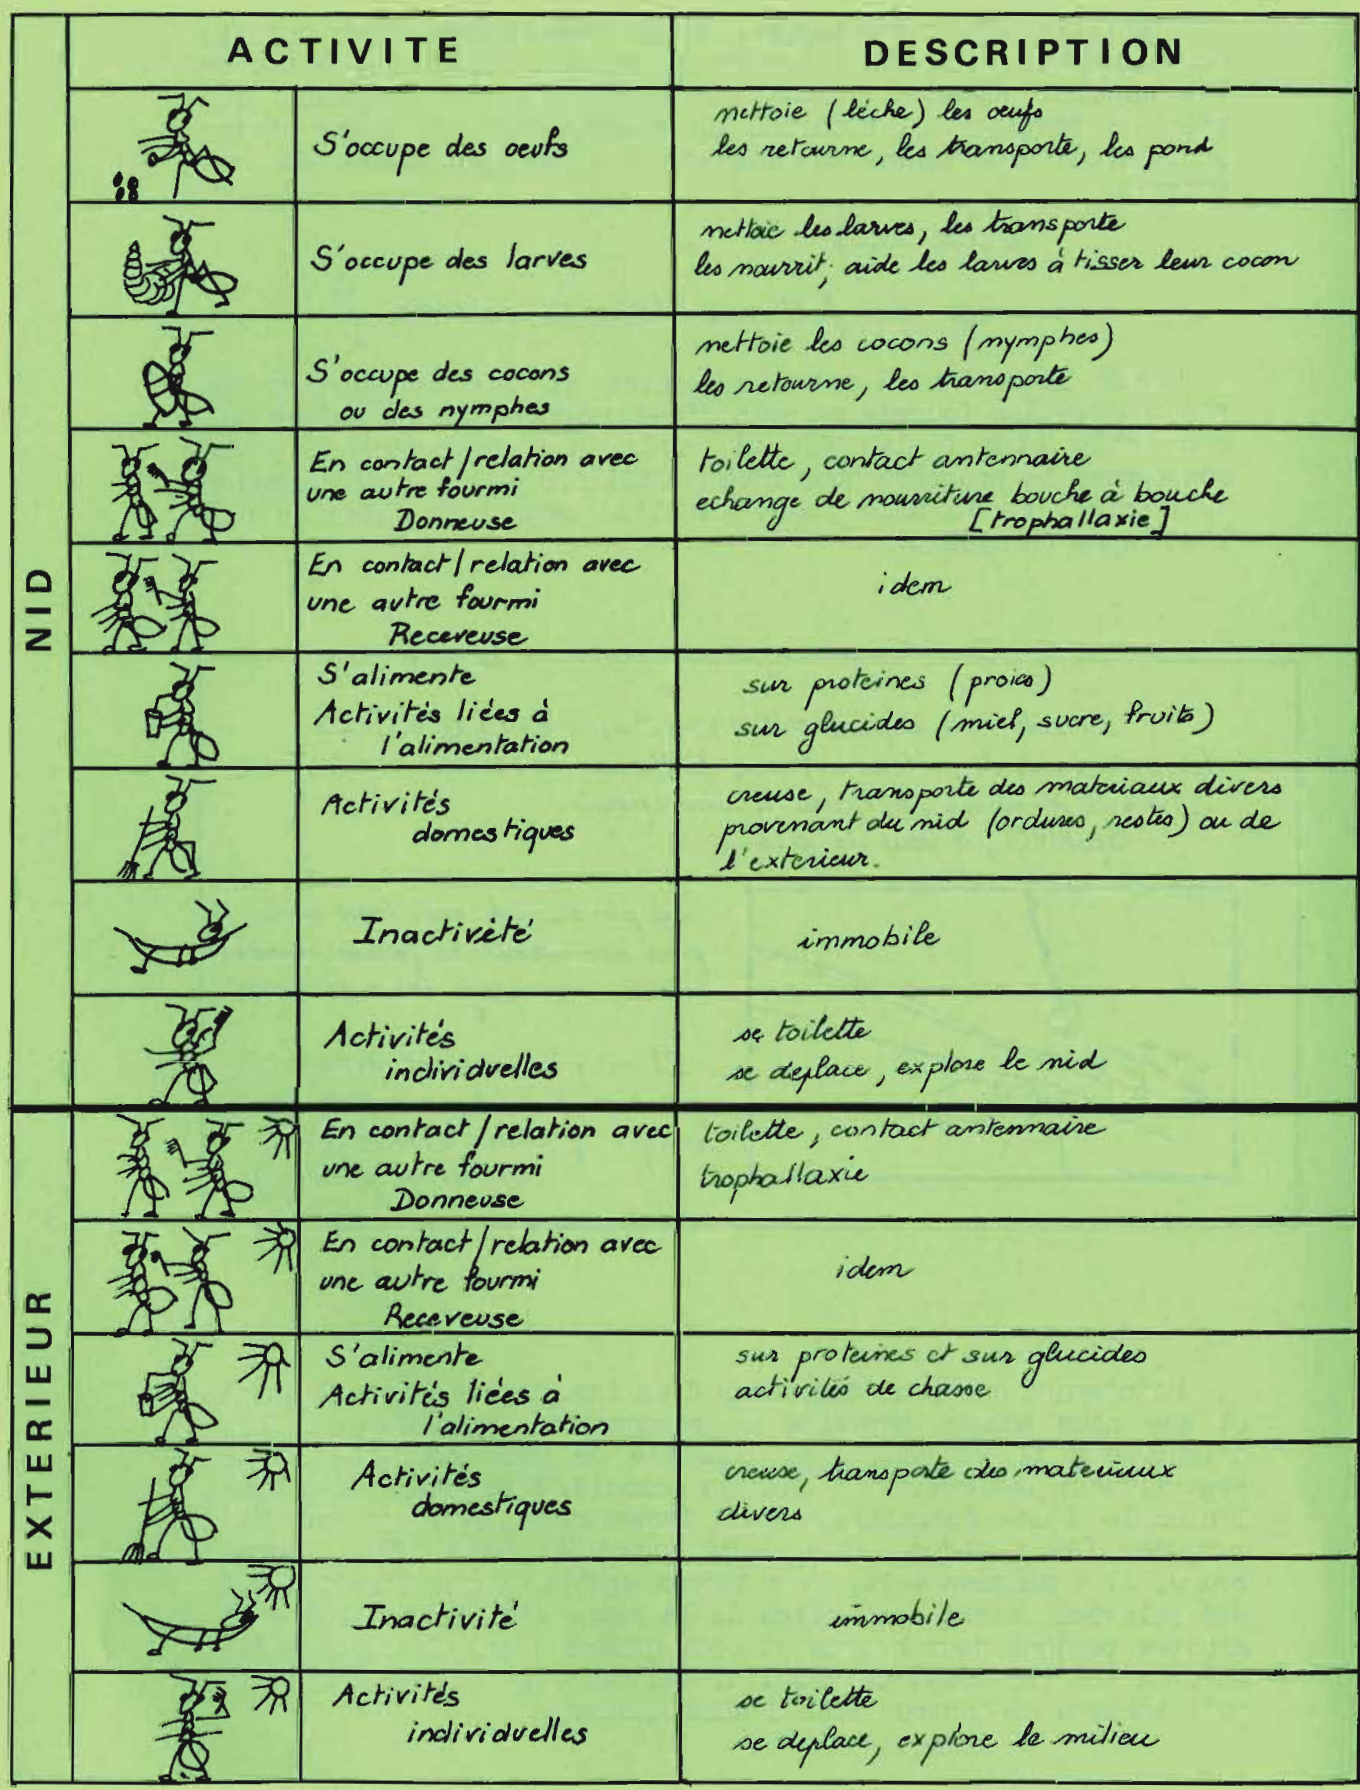 ACTIVITE
DESCRIPTION
NID
S'occupe des oeufs
nettoie (lèche) les oeufs
les retourne, les transporte, les pond
S'occupe des larves
nettoie les larves, les transporte
les nourrit, aide les larves à tisser leur cocon
S'occupe des cocons
ou des nymphes
nettoie les cocons (nymphes)
les retourne, les transporte
En contact/relation avec
une autre fourmi
Donneuse
toilette, contact antennaire
echange de nourriture bouche à bouche
[trophallaxie]
En contact/relation avec
une autre fourmi
Receveuse
idem
S'alimente
Activités liées à
l'alimentation
sur proteines (proies)
sur glucides (miel, sucre, fruits)
Activités
domestiques
creuse, transporte des materiaux divers
provenant du nid (ordures, restes) ou de
l'exterieur.
Inactivité
immobile
Activités
individuelles
se toilette
se deplace, explore le nid
EXTERIEUR
En contact/relation avec
une autre fourmi
Donneuse
toilette, contact antennaire
trophallaxie
En contact/relation avec
une autre fourmi
Receveuse
idem
S'alimente
Activités liées à
l'alimentation
sur proteines et sur glucides
activités de chasse
Activités
domestiques
creuse, transporte des materiaux
divers
Inactivité
immobile
Activités
individuelles
se toilette
se deplace, explore le milieu